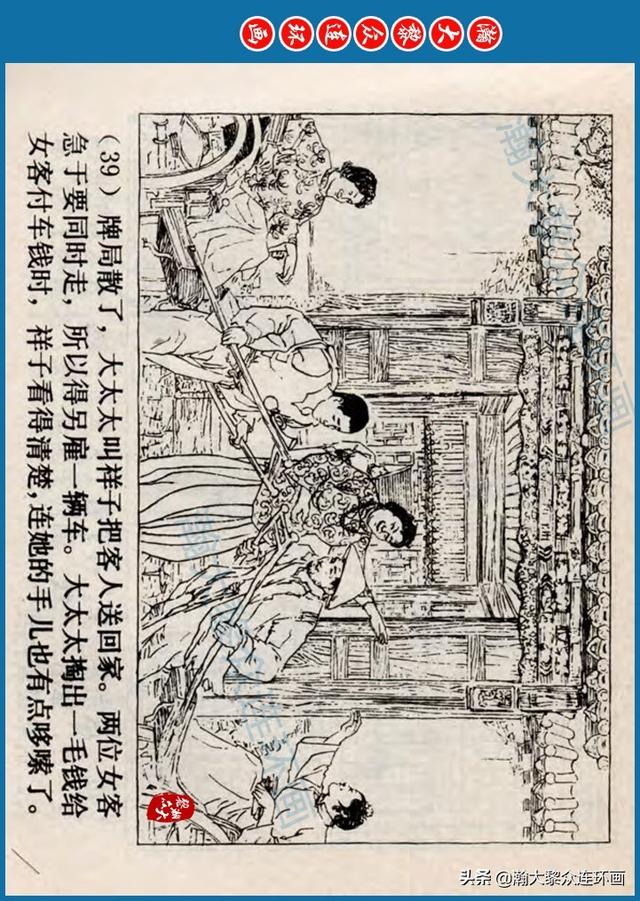 瀚大黎众连环画
（39）牌局散了，大太太叫祥子把客人送回家。两位女客
急于要同时走，所以得另雇一辆车。大太太掏出一毛钱给
女客付车钱时，祥子看得清楚，连她的手儿也有点哆嗦了。
瀚大黎众连环画
瀚大黎众连环画
瀚大黎众
头条 @瀚大黎众连环画